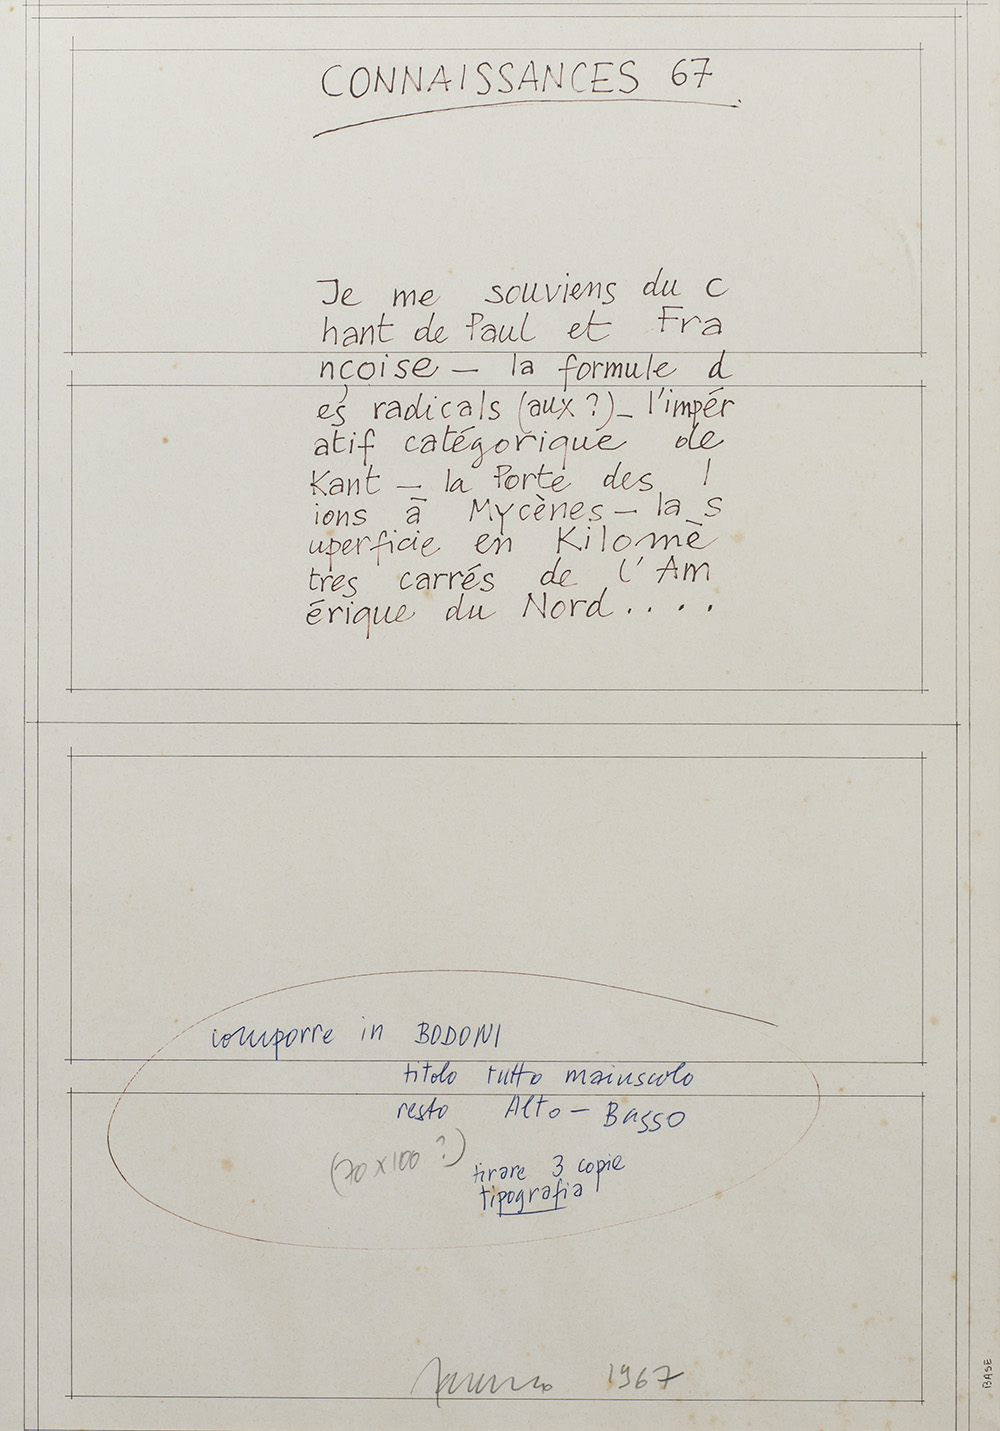 CONNAISSANCES 67
Je me souviens du c
hant de Paul et Fra
nçoise — la formule d
es radicals (aux ?) — l'impér
atif catégorique de
Kant — la Porte des l
ions à Mycènes — la s
uperficie en Kilomè
tres carrés de l'Am
érique du Nord....
comporre in BODONI
titolo tutto maiuscolo
resto Alto - Basso
(70 x 100 ?)
tirare 3 copie
tipografia
1967
BASE